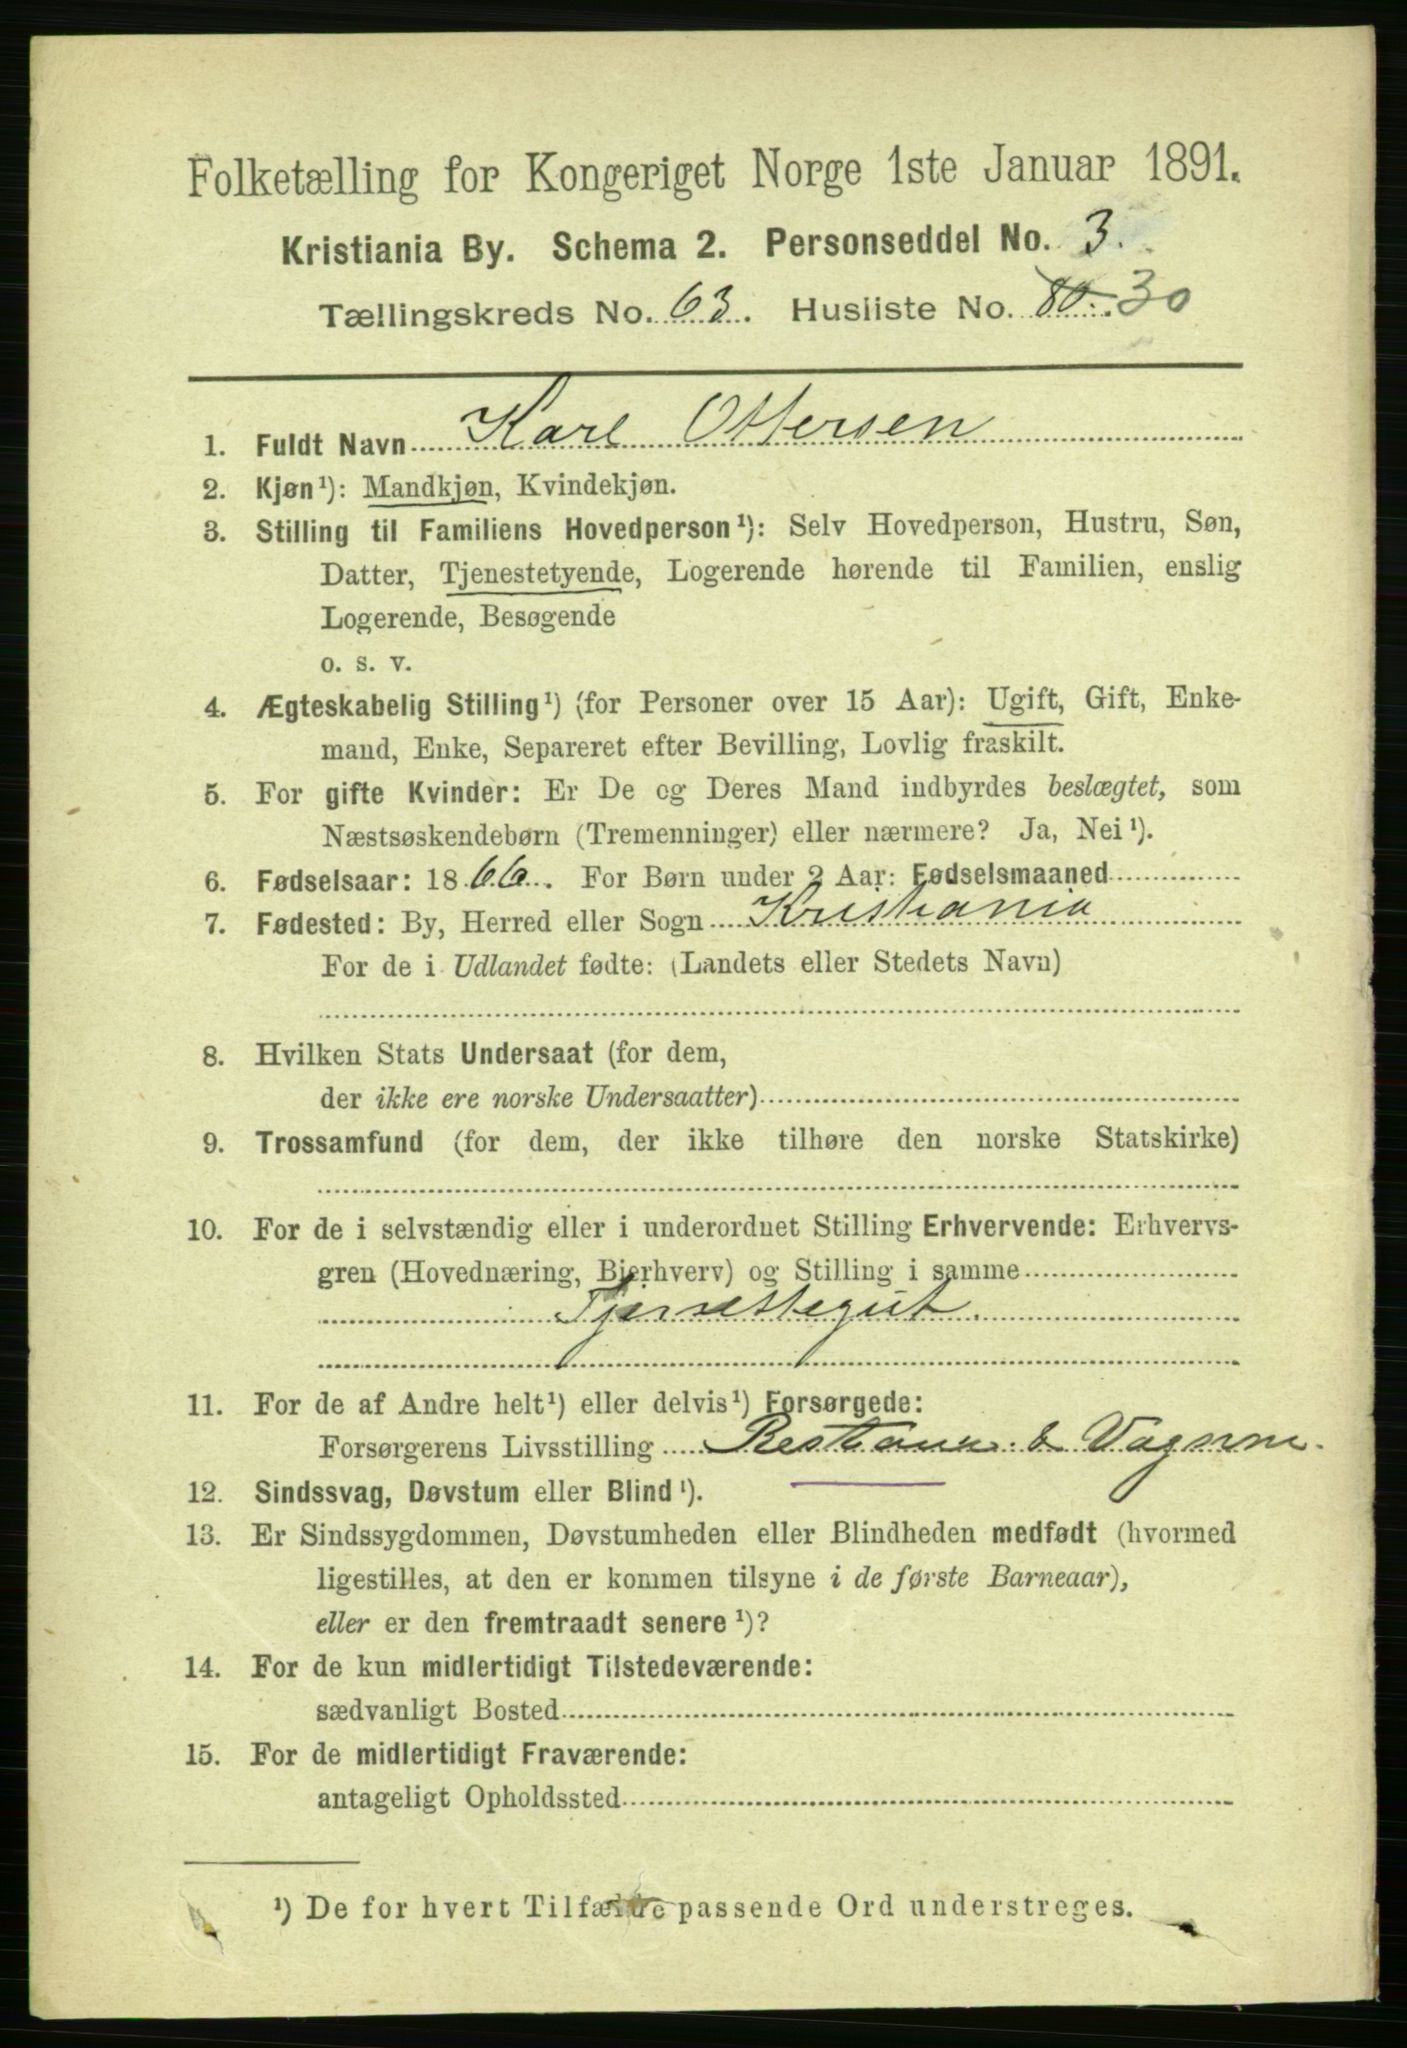 Folketælling for Kongeriget Norge 1ste Januar 1891.
Kristiania By. Schema 2. Personseddel No. 3.
Tællingskreds No. 63. Husliste No. 80. 30
1. Fuldt Navn Karl Ottersen
2. Kjøn¹): Mandkjøn, Kvindekjøn.
3. Stilling til Familiens Hovedperson¹): Selv Hovedperson, Hustru, Søn,
Datter, Tjenestetyende, Logerende hørende til Familien, enslig
Logerende, Besøgende
o. s. v.
4. Ægteskabelig Stilling¹) (for Personer over 15 Aar): Ugift, Gift, Enke-
mand, Enke, Separeret efter Bevilling, Lovlig fraskilt.
5. For gifte Kvinder: Er De og Deres Mand indbyrdes beslægtet, som
Næstsøskendebørn (Tremenninger) eller nærmere? Ja, Nei¹).
6. Fødselsaar: 1866. For Børn under 2 Aar: Fødselsmaaned
7. Fødested: By, Herred eller Sogn Kristiania
For de i Udlandet fødte: (Landets eller Stedets Navn)
8. Hvilken Stats Undersaat (for dem,
der ikke ere norske Undersaatter)
9. Trossamfund (for dem, der ikke tilhøre den norske Statskirke)
10. For de i selvstændig eller i underordnet Stilling Erhvervende: Erhvervs-
gren (Hovednæring, Bierhverv) og Stilling i samme
Tjenestegut.
11. For de af Andre helt¹) eller delvis¹) Forsørgede:
Forsørgerens Livsstilling
12. Sindssvag, Døvstum eller Blind¹).
13. Er Sindssygdommen, Døvstumheden eller Blindheden medfødt (hvormed
ligestilles, at den er kommen tilsyne i de første Barneaar),
eller er den fremtraadt senere¹)?
14. For de kun midlertidigt Tilstedeværende:
sædvanligt Bosted
15. For de midlertidigt Fraværende:
antageligt Opholdssted
¹) De for hvert Tilfælde passende Ord understreges.